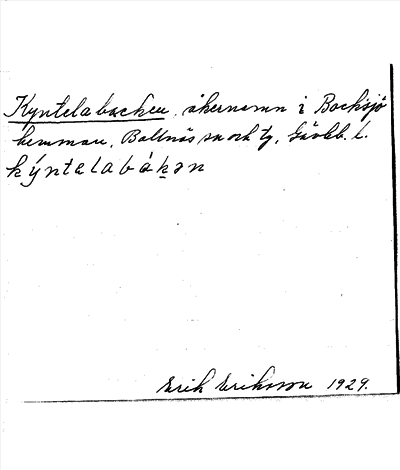 Kyntelabacken, åkernamn i Bocksjö
hemman, Bollnäs sn och tg, Gävleb. l.
kýntelabákən
Erik Eriksson 1929.